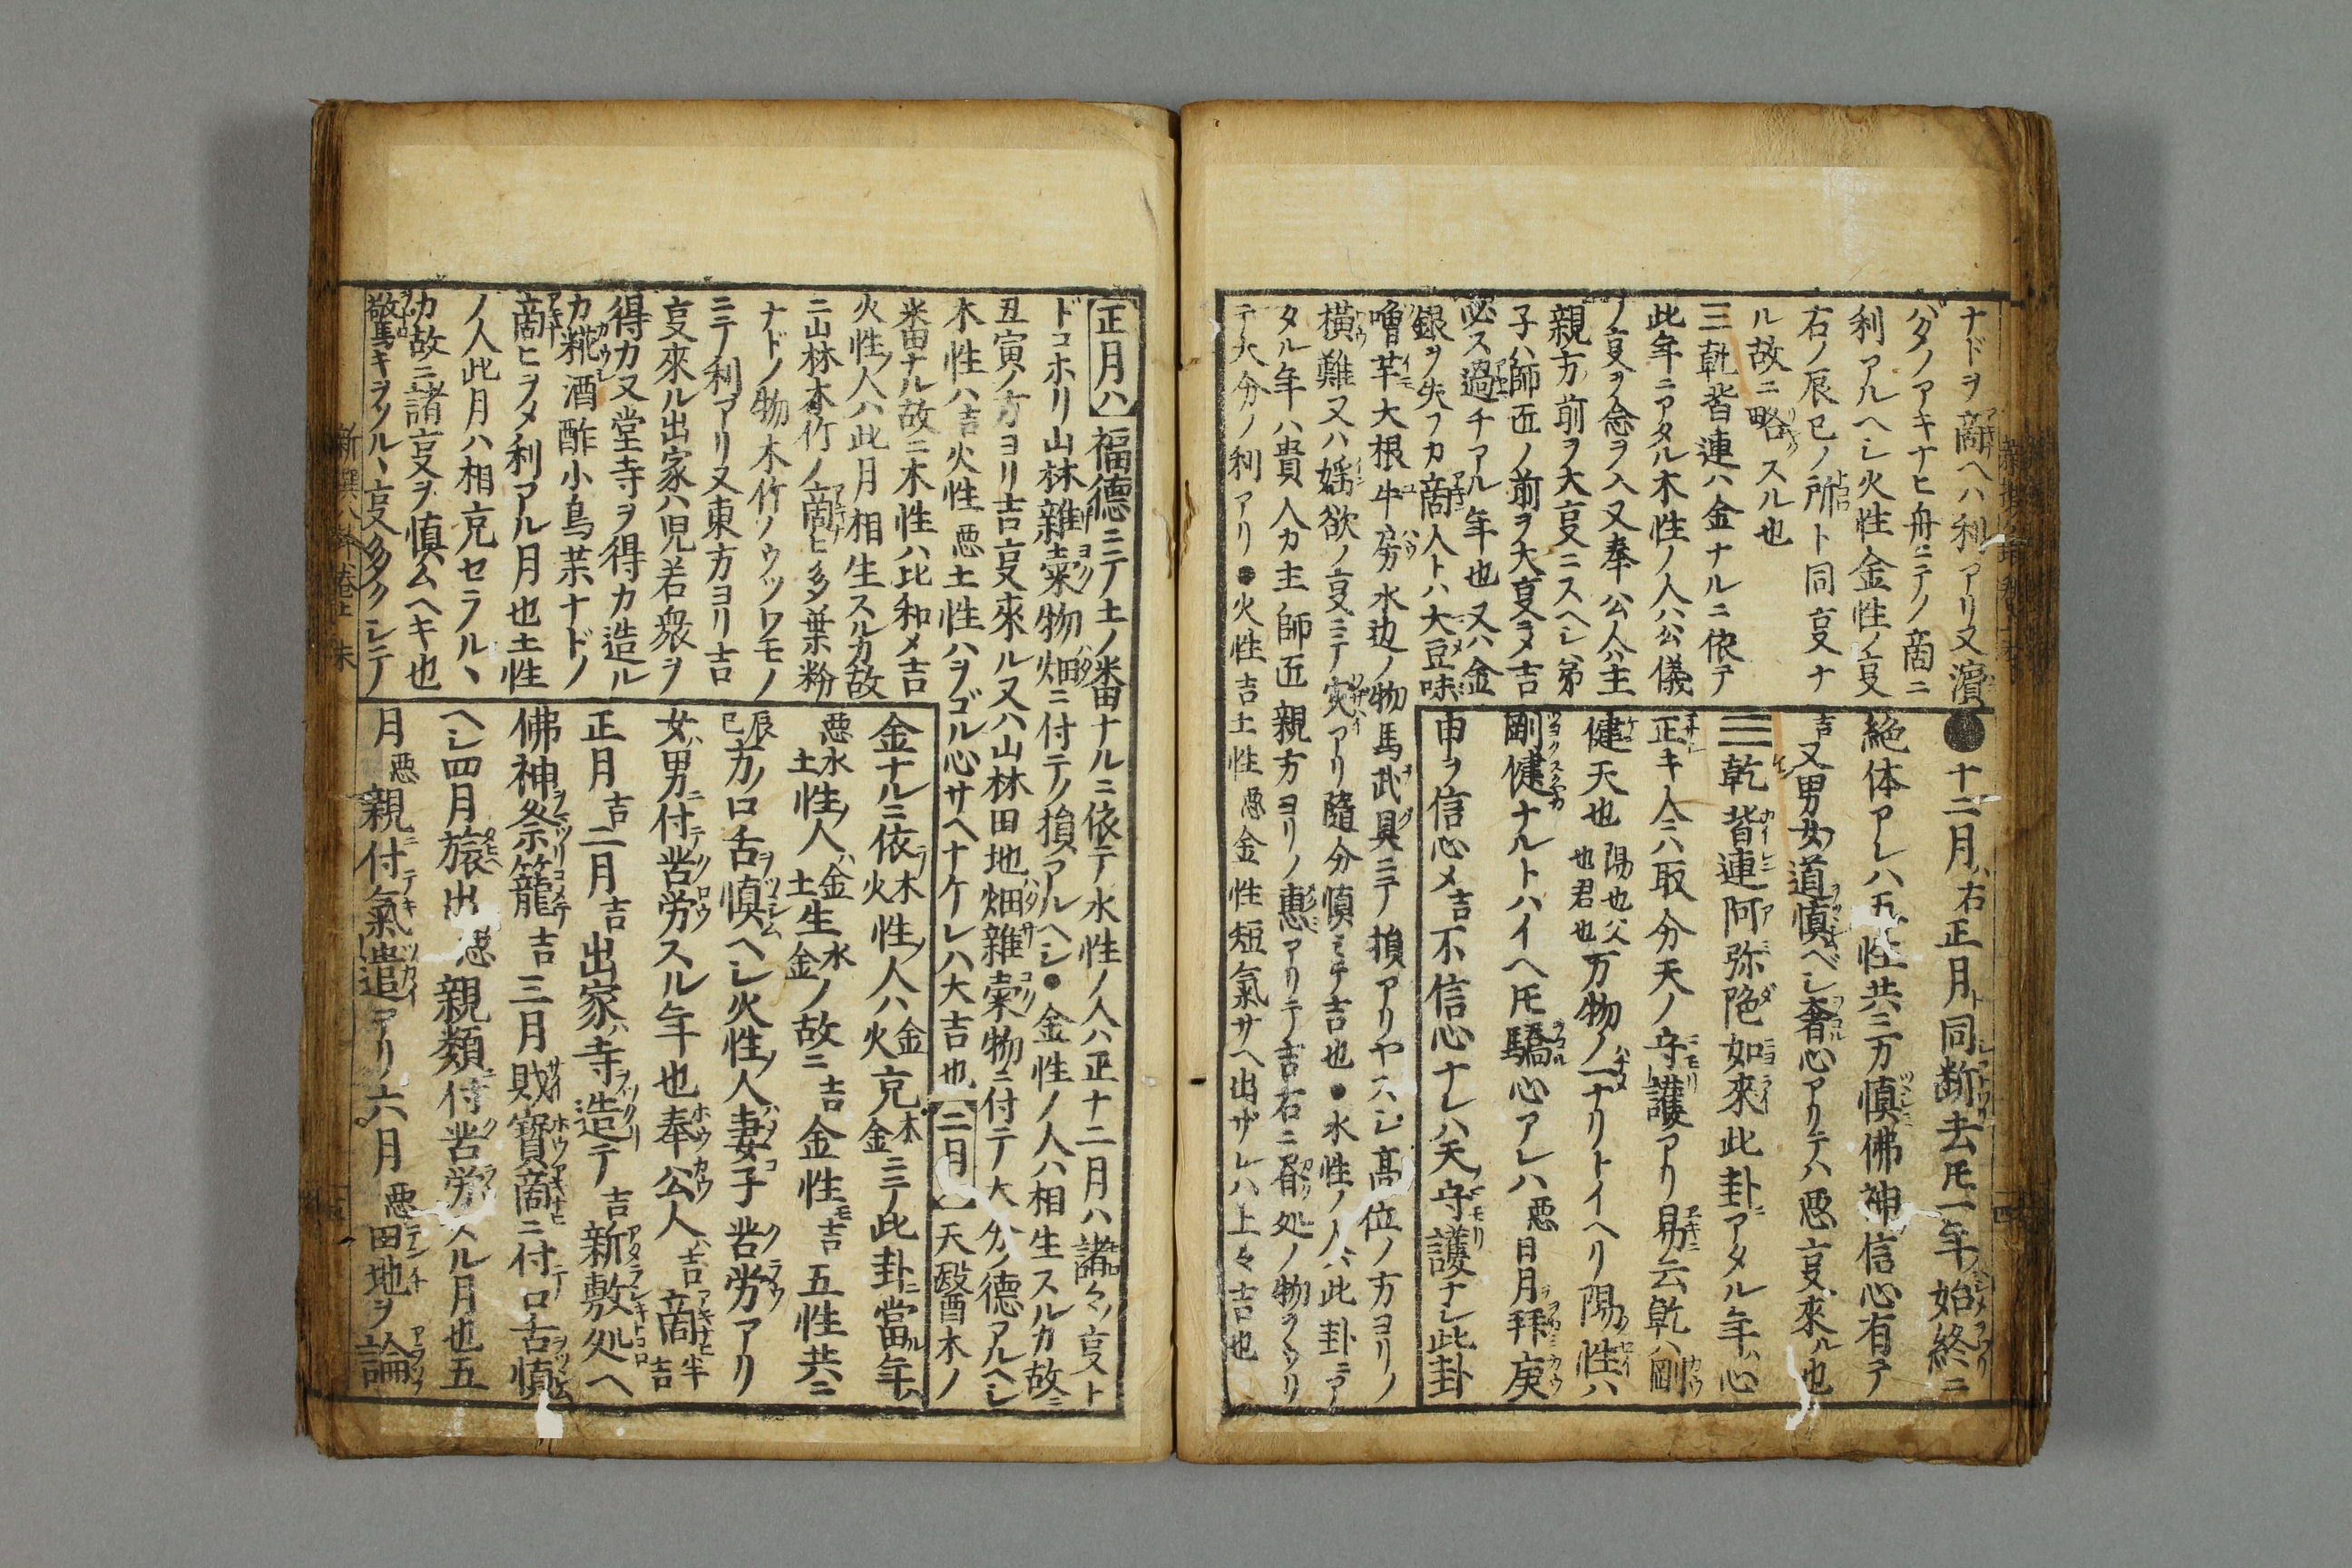 ナドヲ啇ヘハ利アリ又濵
バタノアキナヒ舟ニテノ啇ニ
利アルヘシ火性金性ノ㕝
右ノ辰巳ノ所ト同㕝ナ
ル故ニ略スル也
三乾皆連ハ金ナルニ依テ
此年ニアタル木性ノ人ハ公儀
ノ㕝ヲ念ヲ入又奉公人ハ主
親方前ヲ大㕝ニスヘシ弟
子ハ師匠ノ前ヲ大㕝ヲメ吉
必ス過チアル年也又ハ金
銀ヲ失フカ啇人トハ大豆味
噌芋大根牛房水边ノ物馬武具ニテ損アリヤスシ高位ノ方ヨリノ
横難又ハ婬欲ノ㕝ニテ灾アリ隨分慎ミテ吉也●水性ノ人ハ此卦ニア
タル年ハ貴人カ主師匠親方ヨリノ惠アリテ吉右ニ
テ大分ノ利アリ●火性吉土性悪金性短氣サヘ出サレハ上々吉也
●十二月ハ右正月ト同断去𪜈一年ノ始終ニ
絶体アレハ五性共ニ万慎佛神信心有テ
吉又男女ノ道慎ベシ奢心アリテハ悪㕝來ル也
☰乾皆連阿弥陁如來此卦ニアタル年ハ心
正キ人ニハ取分天ノ守護アリ易云乾ハ剛
健天也陽也父也君也万物ノ一ナリトイヘリ陽性ハ
剛健ナルトハイヘ𪜈驕心アレハ悪日月拜庚
申ヲ信心メ吉不信心ナレハ天ノ守護ナシ此卦
正月ハ福德ニテ土ノ畨ナルニ依テ水性ノ人ハ正十二月ハ諸々ノ㕝ト
ドコホリ山林雜菜物畑ニ付テノ損アルヘシ●金性ノ人ハ相生スルカ故ニ
丑寅ノ方ヨリ吉㕝來ル又ハ山林田地畑雜物ニ付テ大分ノ德アルヘシ
木性ハ吉火性悪土性ハヲゴル心サヘナケレハ大吉也二月天醫木ノ
畨ナル故ニ木性ハ比和メ吉
火性ノ人ハ此月相生スルカ故
ニ山林木竹ノ啇ヒ多葉粉
ナドノ物木竹ノウツワモノ
ニテ利アリ又東方ヨリ吉
㕝來ル出家ハ児若衆ヲ
得カ又堂寺ヲ得カ造ル
カ糀酒酢小鳥茶ナドノ
啇ヒヲメ利アル月也土性
ノ人此月ハ相克セラルヽ
カ故ニ諸㕝ヲ慎ムヘキ也
驚キヲソルヽ㕝多クシテ
金ナルニ依テ木火性ノ人ハ金火克木金ニテ此卦ニ當ル年ハ
悪水土性ノ人ハ金土生水金ノ故ニ吉金性モ吉五性共ニ
辰巳方ノ口舌ヲ慎ヘシ火性ノ人妻子苦労アリ
女ハ男ニ付テ苦労スル年也奉公人ハ吉啇半吉
正月吉二月吉出家ハ寺造テ吉新敷処ヘ
佛神祭籠吉三月賊寳啇ニ付テ口舌慎
ヘシ四月旅出悪親類付苦労スル月也五
月悪親ニ付テ氣遣アリ六月悪田地ヲ論
新撰八卦 巻上 末